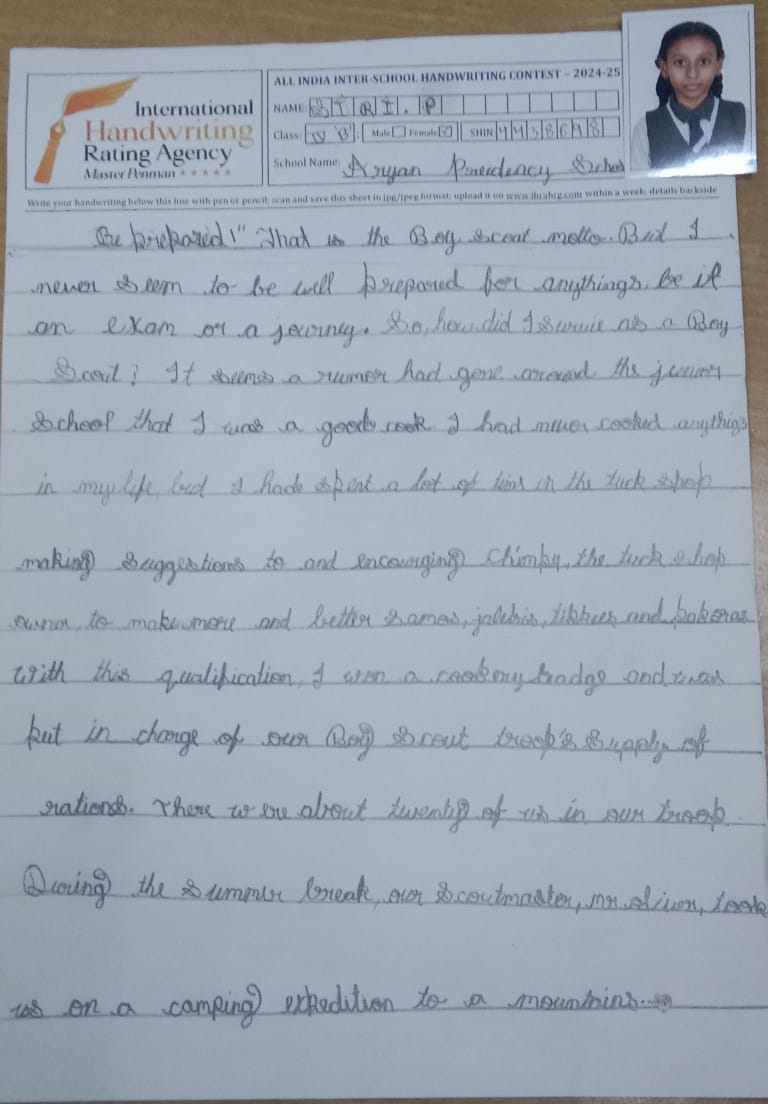 ALL INDIA INTER-SCHOOL HANDWRITING CONTEST – 2024-25
International
Handwriting
Rating Agency
Master Penman
NAME: SIRI. P
Class: IV B Male Female SHIN 4438698
School Name: Aryan Presidency School
Write your handwriting below this line with pen or pencil; scan and save this sheet in jpg/jpeg format; upload it on www.ihrahrg.com within a week; details backside
Be prepared!" That is the Boy scout motto. But I
never seem to be well prepared for anythings, be it
an exam or a journey. So, how did I survie as a Boy
Scout? It seems a rumer had gone around the junior
School that I was a good cook I had never cooked anything
in my life, but I had spent a lot of time in the tuck shop
making suggestions to and encourging Chimpu, the tuck shop
owner, to make more and better samos, jalebis, tikkees and pakoras
With this qualification, I won a cookery badge and was
put in charge of our Boy Scout troop's supply of
rations. There were about twenty of us in our troop.
During the summer break, our Scoutmaster, mr oliver, took
us on a camping expedition to a mountains...